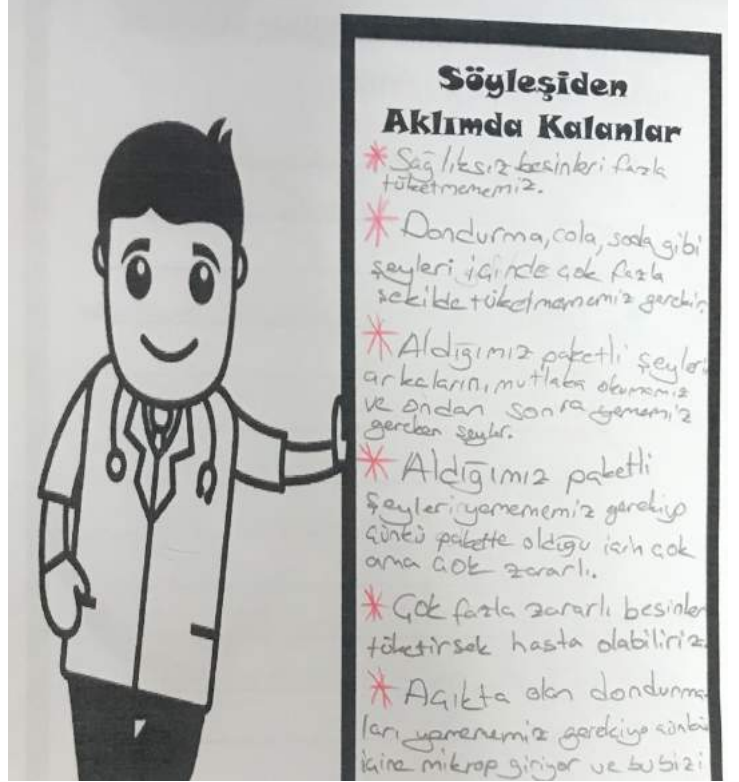 Söyleşiden
Aklımda Kalanlar
* Sağlıksız besinleri fazla
tüketmememiz.
* Dondurma, cola, soda gibi
şeyleri içinde çok fazla
şekilde tüketmememiz gerekir.
* Aldığımız paketli şeyleri
arkalarını, mutlaka okumamız
ve ondan sonra yememiz
gereken şeyler.
* Aldığımız paketli
şeyleri yemememiz gerekiyo
çünkü pakette olduğu için çok
ama çok zararlı.
* Çok fazla zararlı besinler
tüketirsek hasta olabiliriz.
* Açıkta olan dondurma
ları yemememiz gerekiyo çünkü
içine mikrop giriyor ve bu bizi